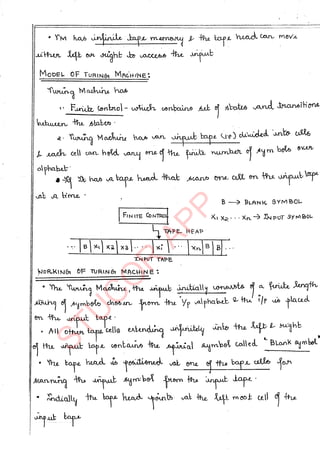 • TM has infinite tape memory & the tape head can move
either left or right to access the input
MODEL OF TURING MACHINE:
Turing Machine has
1. Finite Control - which contains set of states and transitions
between the states.
2. Turing Machine has an input tape (IP) divided into cells
& each cell can hold any one of the finite number of symbols over
alphabet.
It has a tape head that scans one cell on the input tape
at a time.
B → BLANK SYMBOL
FINITE CONTROL
X1 X2 ... Xn → INPUT SYMBOL
TAPE HEAD
... B X1 X2 X3 ... Xi ... Xn B B ...
INPUT TAPE
WORKING OF TURING MACHINE:
• The Turing Machine, the input initially consists of a finite length
string of symbols chosen from the i/p alphabet & the i/p is placed
on the input tape.
• All other tape cells extending infinitely into the left & right
of the input tape contains the special symbol called "Blank symbol"
• The tape head is positioned at one of the tape cells for
scanning the input symbol from the input tape.
• Initially the tape head points at the left most cell of the
input tape.
STUCOR APP